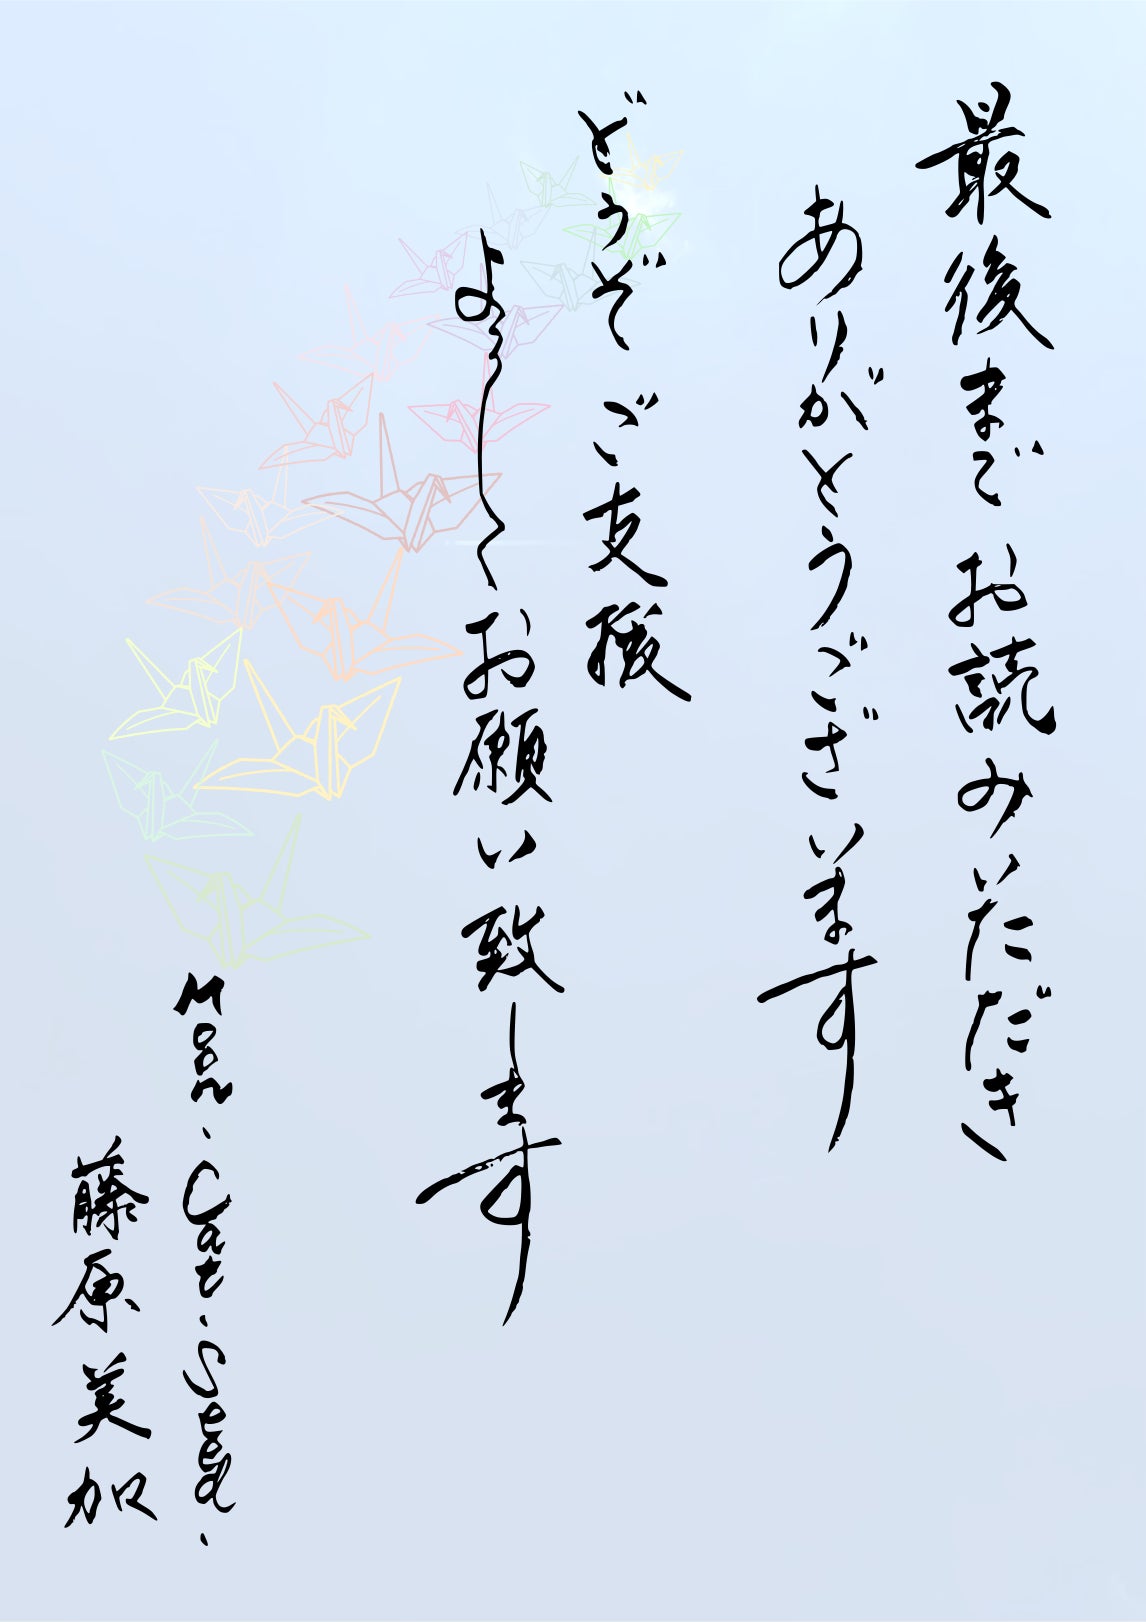 最後までお読みいただき
ありがとうございます
どうぞ ご支援
よろしくお願い致します
Moon.Cat.Seed.
藤原美加